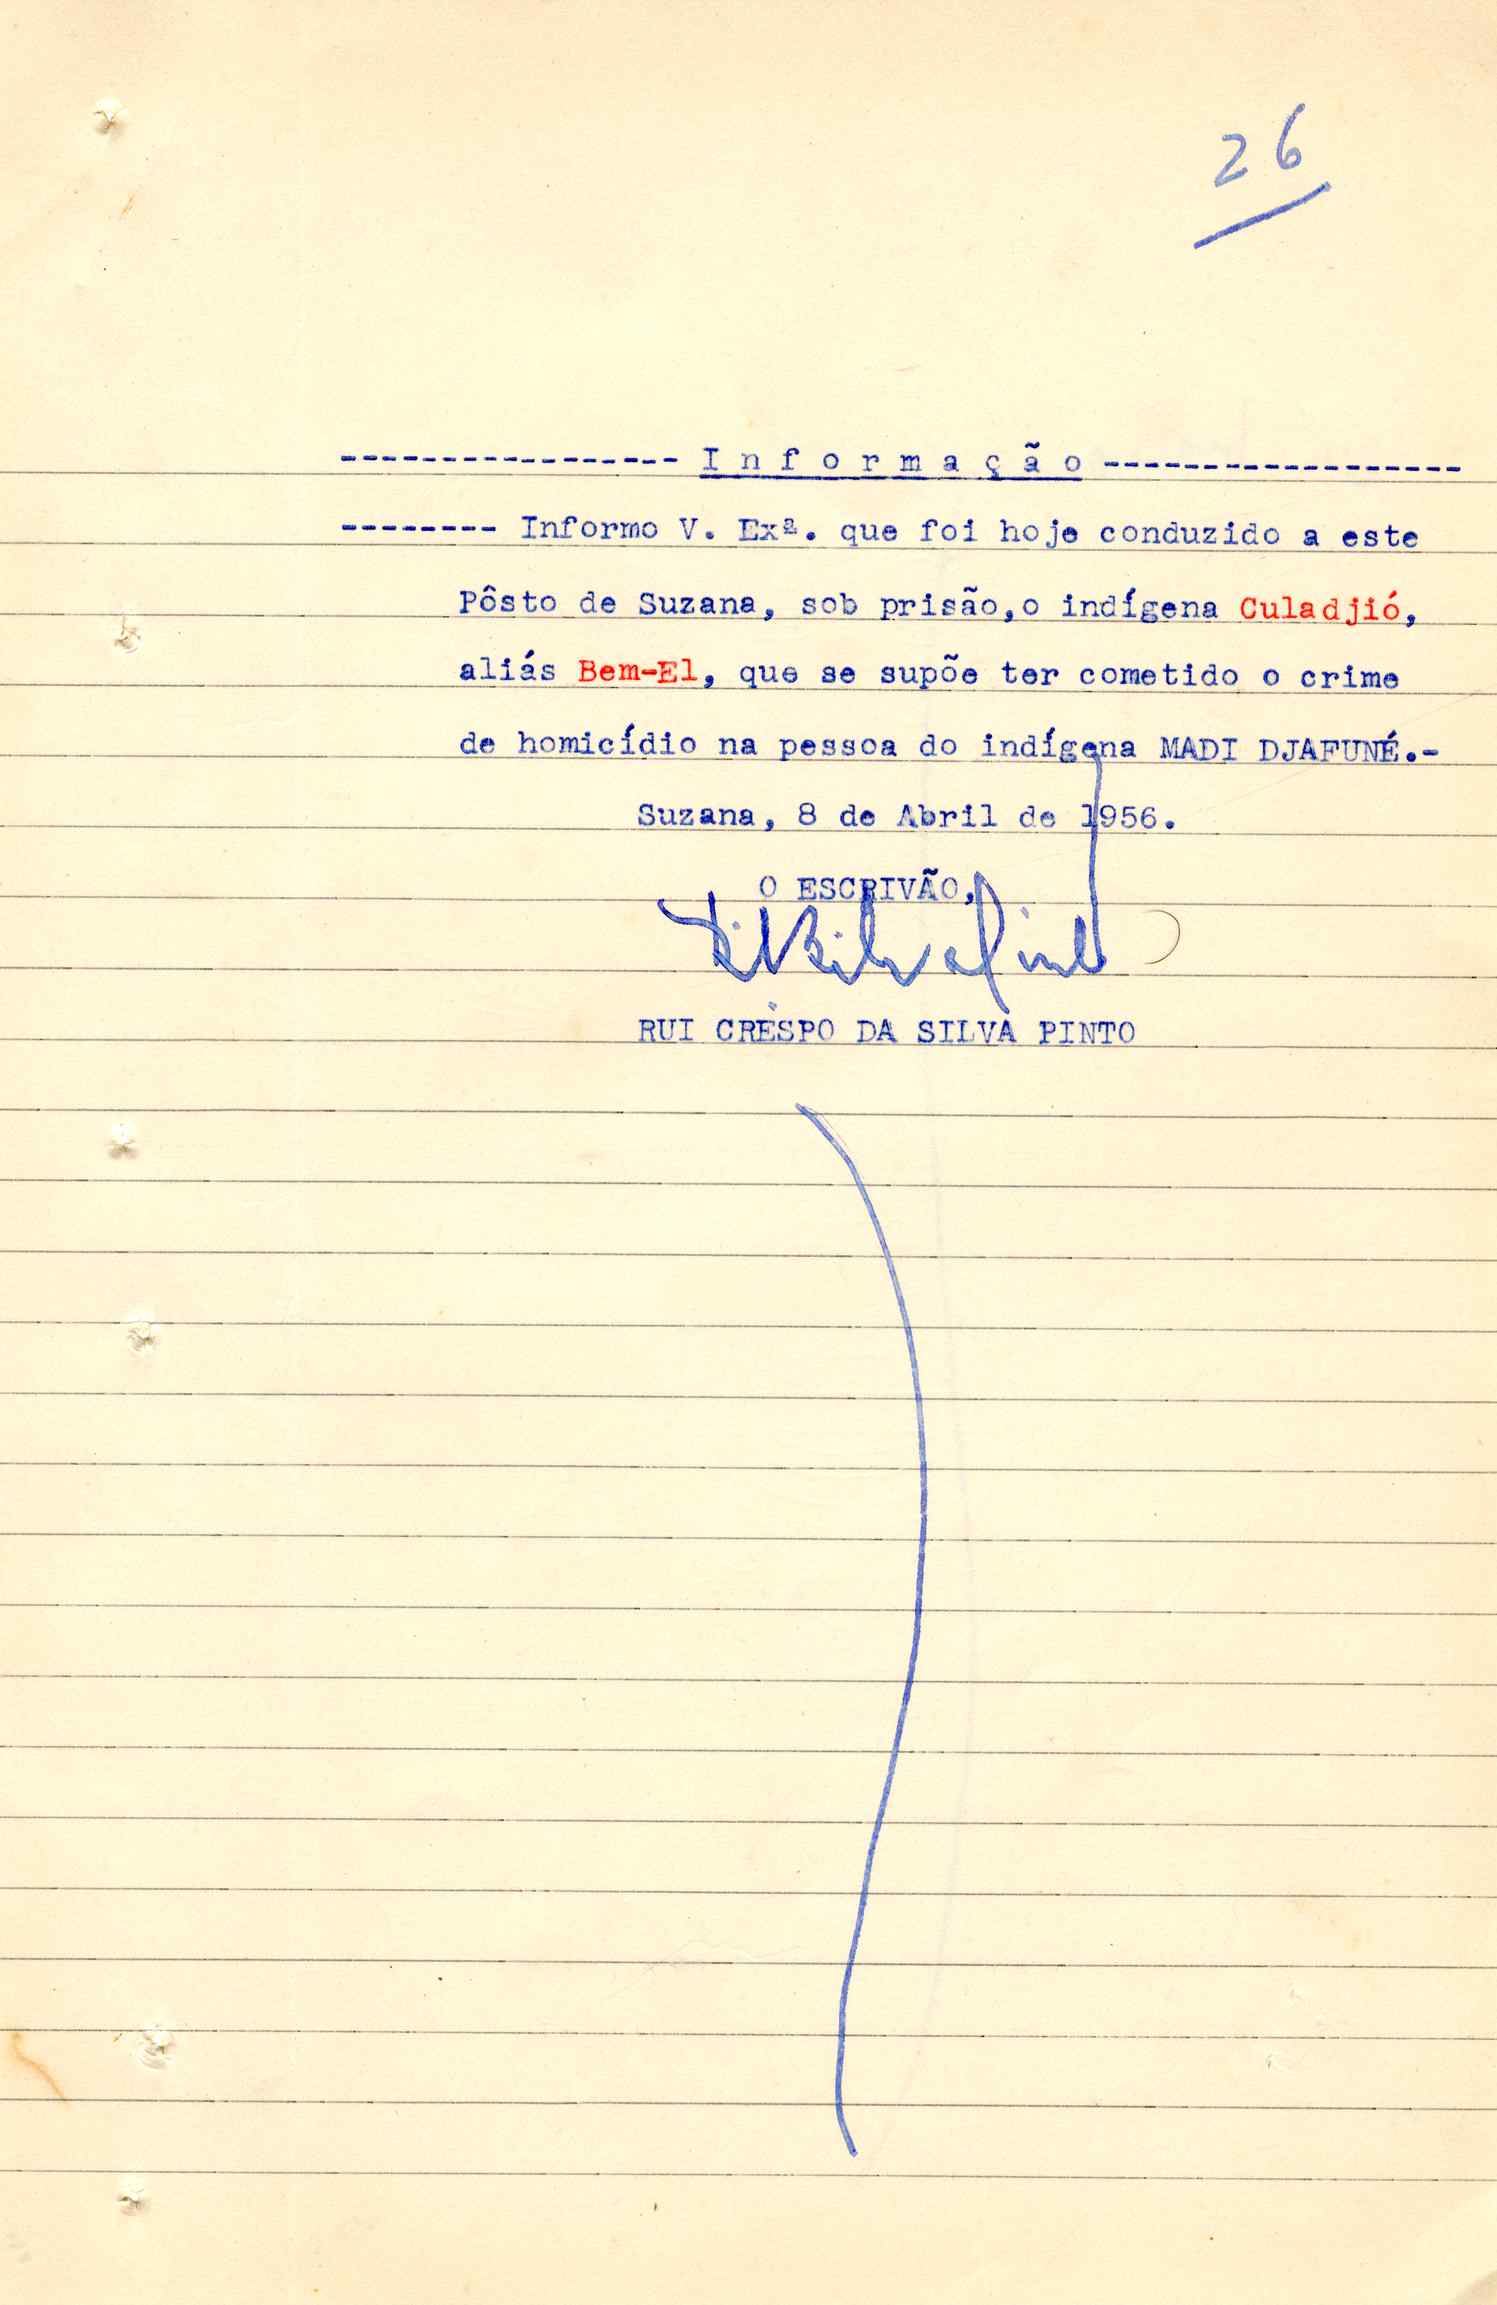 26
----------------- I n f o r m a ç ã o ------------------
-------- Informo V. Exª. que foi hoje conduzido a este
Pôsto de Suzana, sob prisão,o indígena Culadjió,
aliás Bem-El, que se supõe ter cometido o crime
de homicídio na pessoa do indígena MADI DJAFUNÉ.-
Suzana, 8 de Abril de 1956.
O ESCRIVÃO,
RUI CRESPO DA SILVA PINTO